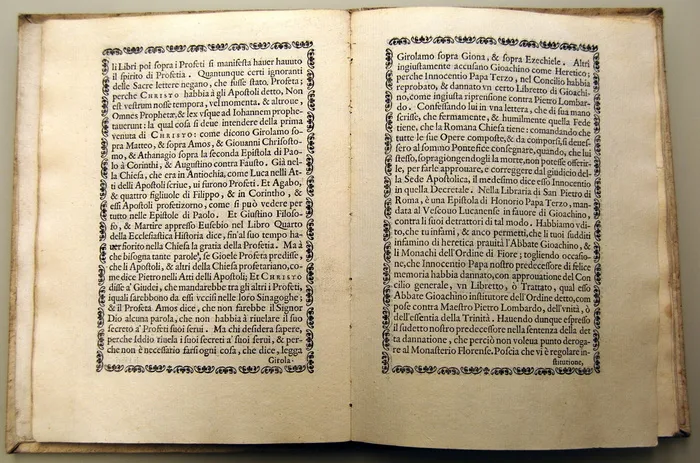 li Libri poi sopra i Profeti si manifesta hauer hauuto
il spirito di Profetia. Quantunque certi ignoranti
delle Sacre lettere negano, che fusse stato, Profeta;
perche CHRISTO habbia à gli Apostoli detto, Non
est vestrum nosse tempora, vel momenta. & altroue,
Omnes Prophetæ, & lex vsque ad Iohannem prophe-
tauerunt: la qual cosa si deue intendere della prima
venuta di CHRISTO: come dicono Girolamo so-
pra Matteo, & sopra Amos, & Giouanni Chrisosto-
mo, & Athanagio sopra la seconda Epistola di Pao-
lo à Corinthi, & Augustino contra Fausto. Già nel-
la Chiesa, che era in Antiochia, come Luca nelli At-
ti delli Apostoli scriue, ui furono Profeti. Et Agabo,
& quattro figliuole di Filippo, & in Corintho, &
essi Apostoli profetizorno, come si può vedere per
tutto nelle Epistole di Paolo. Et Giustino Filoso-
fo, & Martire appresso Eusebio nel Libro Quarto
della Ecclesiastica Historia dice, sin'al suo tempo ha-
uer fiorito nella Chiesa la gratia della Profetia. Ma à
che bisogna tante parole, se Gioele Profeta predisse,
che li Apostoli, & altri della Chiesa profetariano, co-
me dice Pietro nelli Atti delli Apostoli; Et CHRISTO
disse a' Giudei, che mandarebbe tra gli altri i Profeti,
iquali sarebbono da essi vccisi nelle loro Sinagoghe;
& il Profeta Amos dice, che non farebbe il Signor
Dio alcuna parola, che non habbia à riuelare il suo
secreto a' Profeti suoi serui. Ma chi desidera sapere,
perche Iddio riuela i suoi secreti a' suoi serui, & per-
che non è necessario farsi ogni cosa, che dice, legga
Girola-
Girolamo sopra Giona, & sopra Ezechiele. Altri
ingiustamente accusano Gioachino come Heretico;
perche Innocentio Papa Terzo, nel Concilio habbia
reprobato, & dannato vn certo Libretto di Gioachi-
no, come ingiusta riprensione contra Pietro Lombar-
do. Confessando lui in vna lettera, che di sua mano
scrisse, che fermamente, & humilmente quella Fede
tiene, che la Romana Chiesa tiene: comandando che
tutte le sue Opere composte, & da comporsi, si douef-
sero al sommo Pontefice consegnare, quando, che lui
stesso, sopragiongendogli la morte, non potesse offerir-
le, per farle approuare, e correggere dal giudicio del-
la Sede Apostolica, il medesimo dice esso Innocentio
in quella Decretale. Nella Libraria di San Pietro di
Roma, è una Epistola di Honorio Papa Terzo, man-
data al Vescouo Lucanense in fauore di Gioachino,
contra li suoi detrattori di tal modo. Habbiamo vdi-
to, che tu infami, & anco permetti, che li tuoi sudditi
infamino di heretica prauità l'Abbate Gioachino, &
li Monachi dell'Ordine di Fiore; togliendo occasio-
ne, che Innocentio Papa nostro predecessore di felice
memoria habbia dannato, con approuatione del Con-
cilio generale, vn Libretto, ò Trattato, qual esso
Abbate Gioachino institutore dell'Ordine detto, com
pose contra Maestro Pietro Lombardo, dell'vnità, ò
dell'essentia della Trinità. Hauendo dunque espresso
il sudetto nostro predecessore nella sentenza della det
ta dannatione, che perciò non voleua punto deroga-
re al Monasterio Florense. Poscia che vi è regolare in-
stitutione,